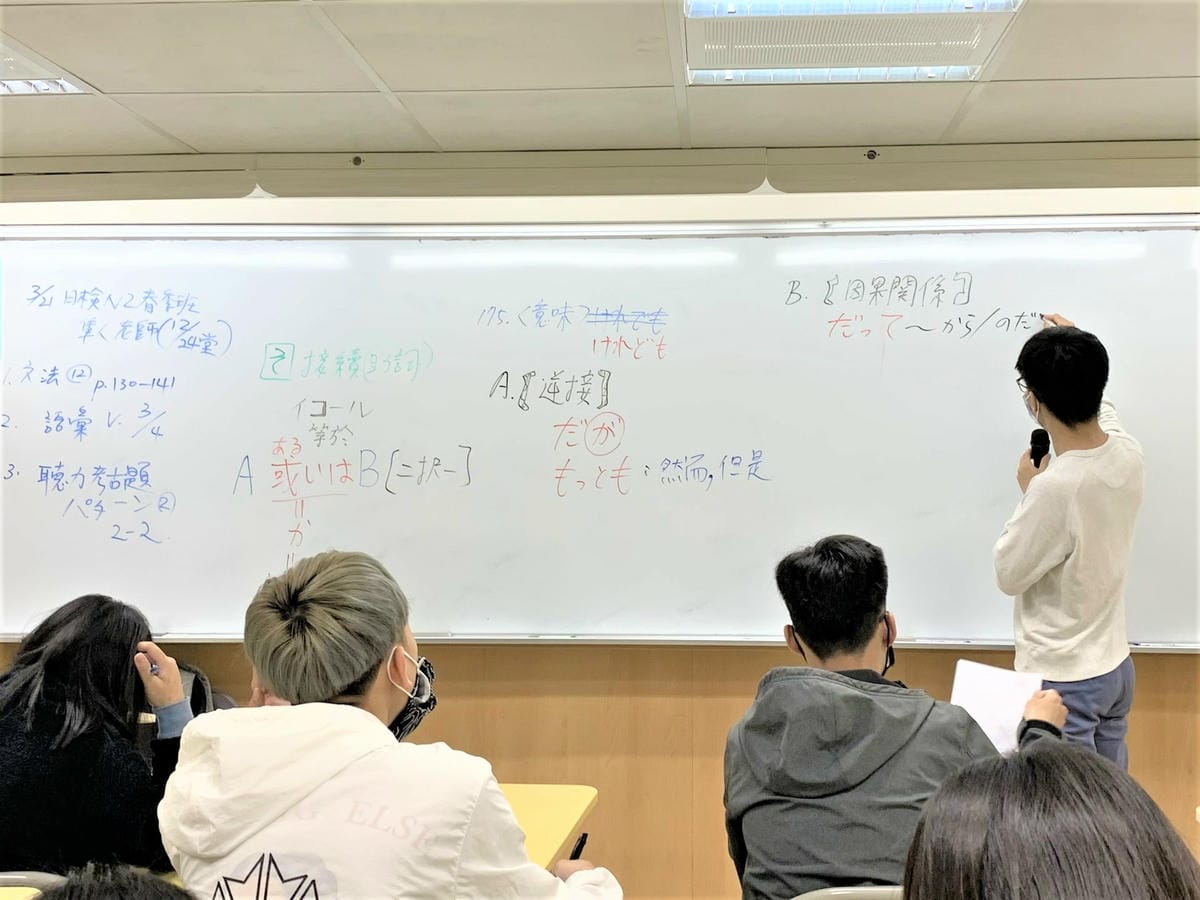 3/21 日檢N2春季班
隼く老師(12/24堂)
1. 文法⑫ p.130-141
2. 語彙 V. 3/4
3. 聽力考古題
パターン②
2-2
そ 接続助詞
イコール
等於
ある
A 或いは B [二択一]
=
か
=
175. <意味> けれども
けれども
A.【逆接】
だが
もっとも:然而,但是
B.【因果関係】
だって~から/のだ
ELSE